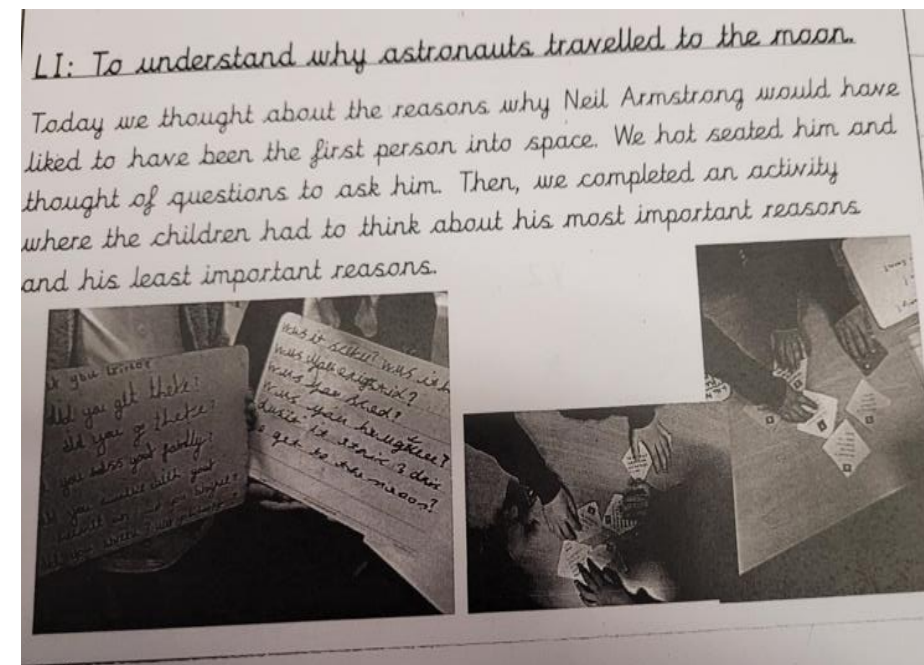 LI: To understand why astronauts travelled to the moon.
Today we thought about the reasons why Neil Armstrong would have
liked to have been the first person into space. We hot seated him and
thought of questions to ask him. Then, we completed an activity
where the children had to think about his most important reasons
and his least important reasons.
you
did you get there?
did you go there?
you miss your family?
you with your
was it was it
was you
was you
was you
it
get to the moon?